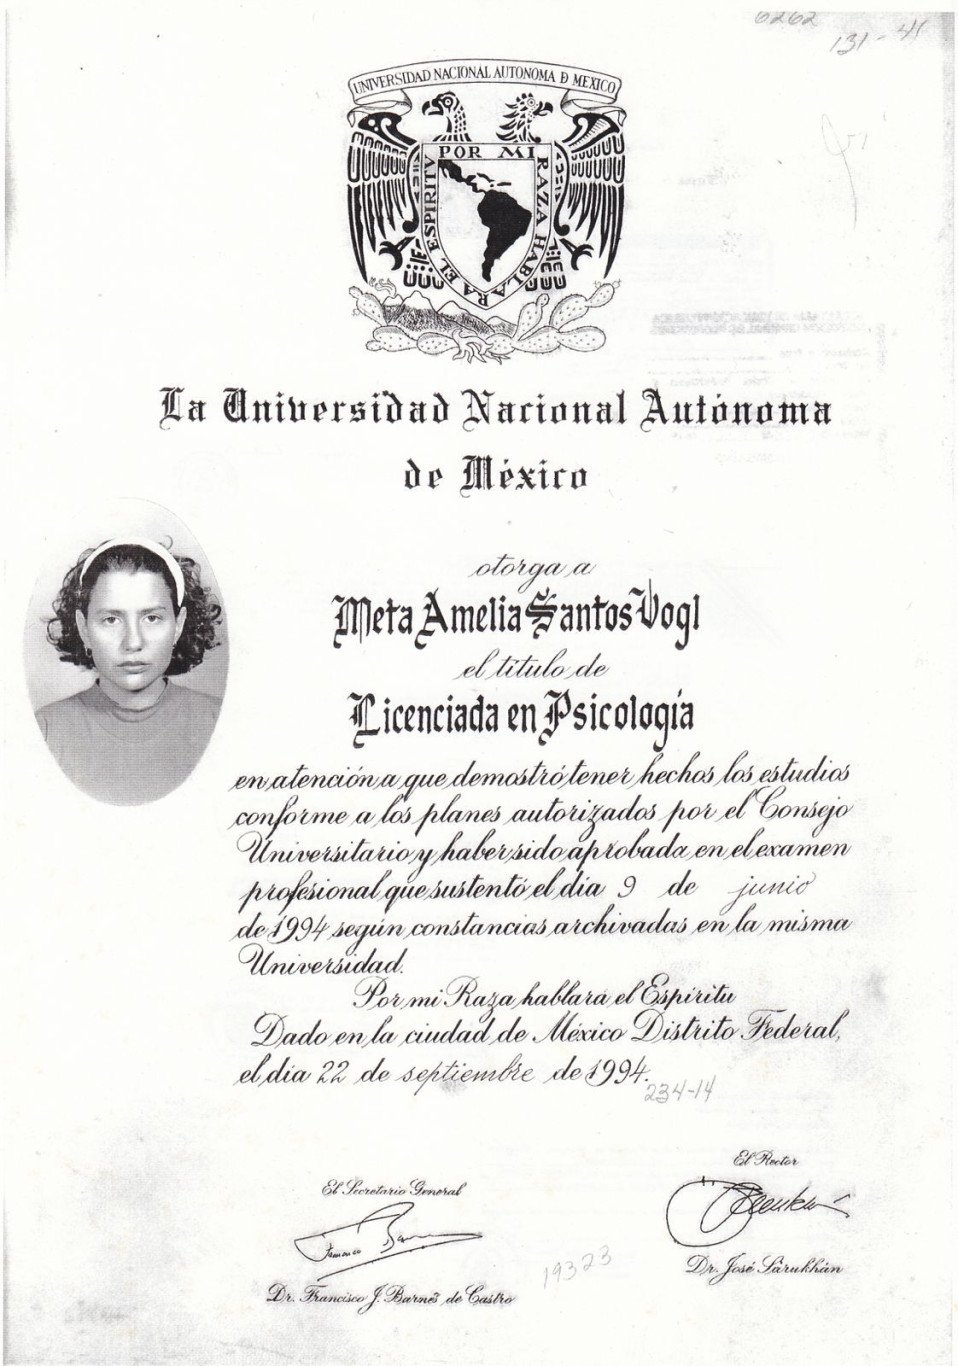 6262
131-41
UNIVERSIDAD NACIONAL AUTONOMA D MEXICO
POR MI RAZA HABLARA EL ESPIRITV
La Universidad Nacional Autónoma
de México
otorga a
Meta Amelia Santos Vogl
el título de
Licenciada en Psicología
en atención a que demostró tener hechos los estudios
conforme a los planes autorizados por el Consejo
Universitario y haber sido aprobada en el examen
profesional que sustentó el día 9 de junio
de 1994 según constancias archivadas en la misma
Universidad.
Por mi Raza hablara el Espíritu
Dado en la ciudad de México Distrito Federal,
el día 22 de septiembre de 1994.
234-14
El Rector
El Secretario General
Dr. José Sarukhán
19323
Dr. Francisco J. Barnés de Castro